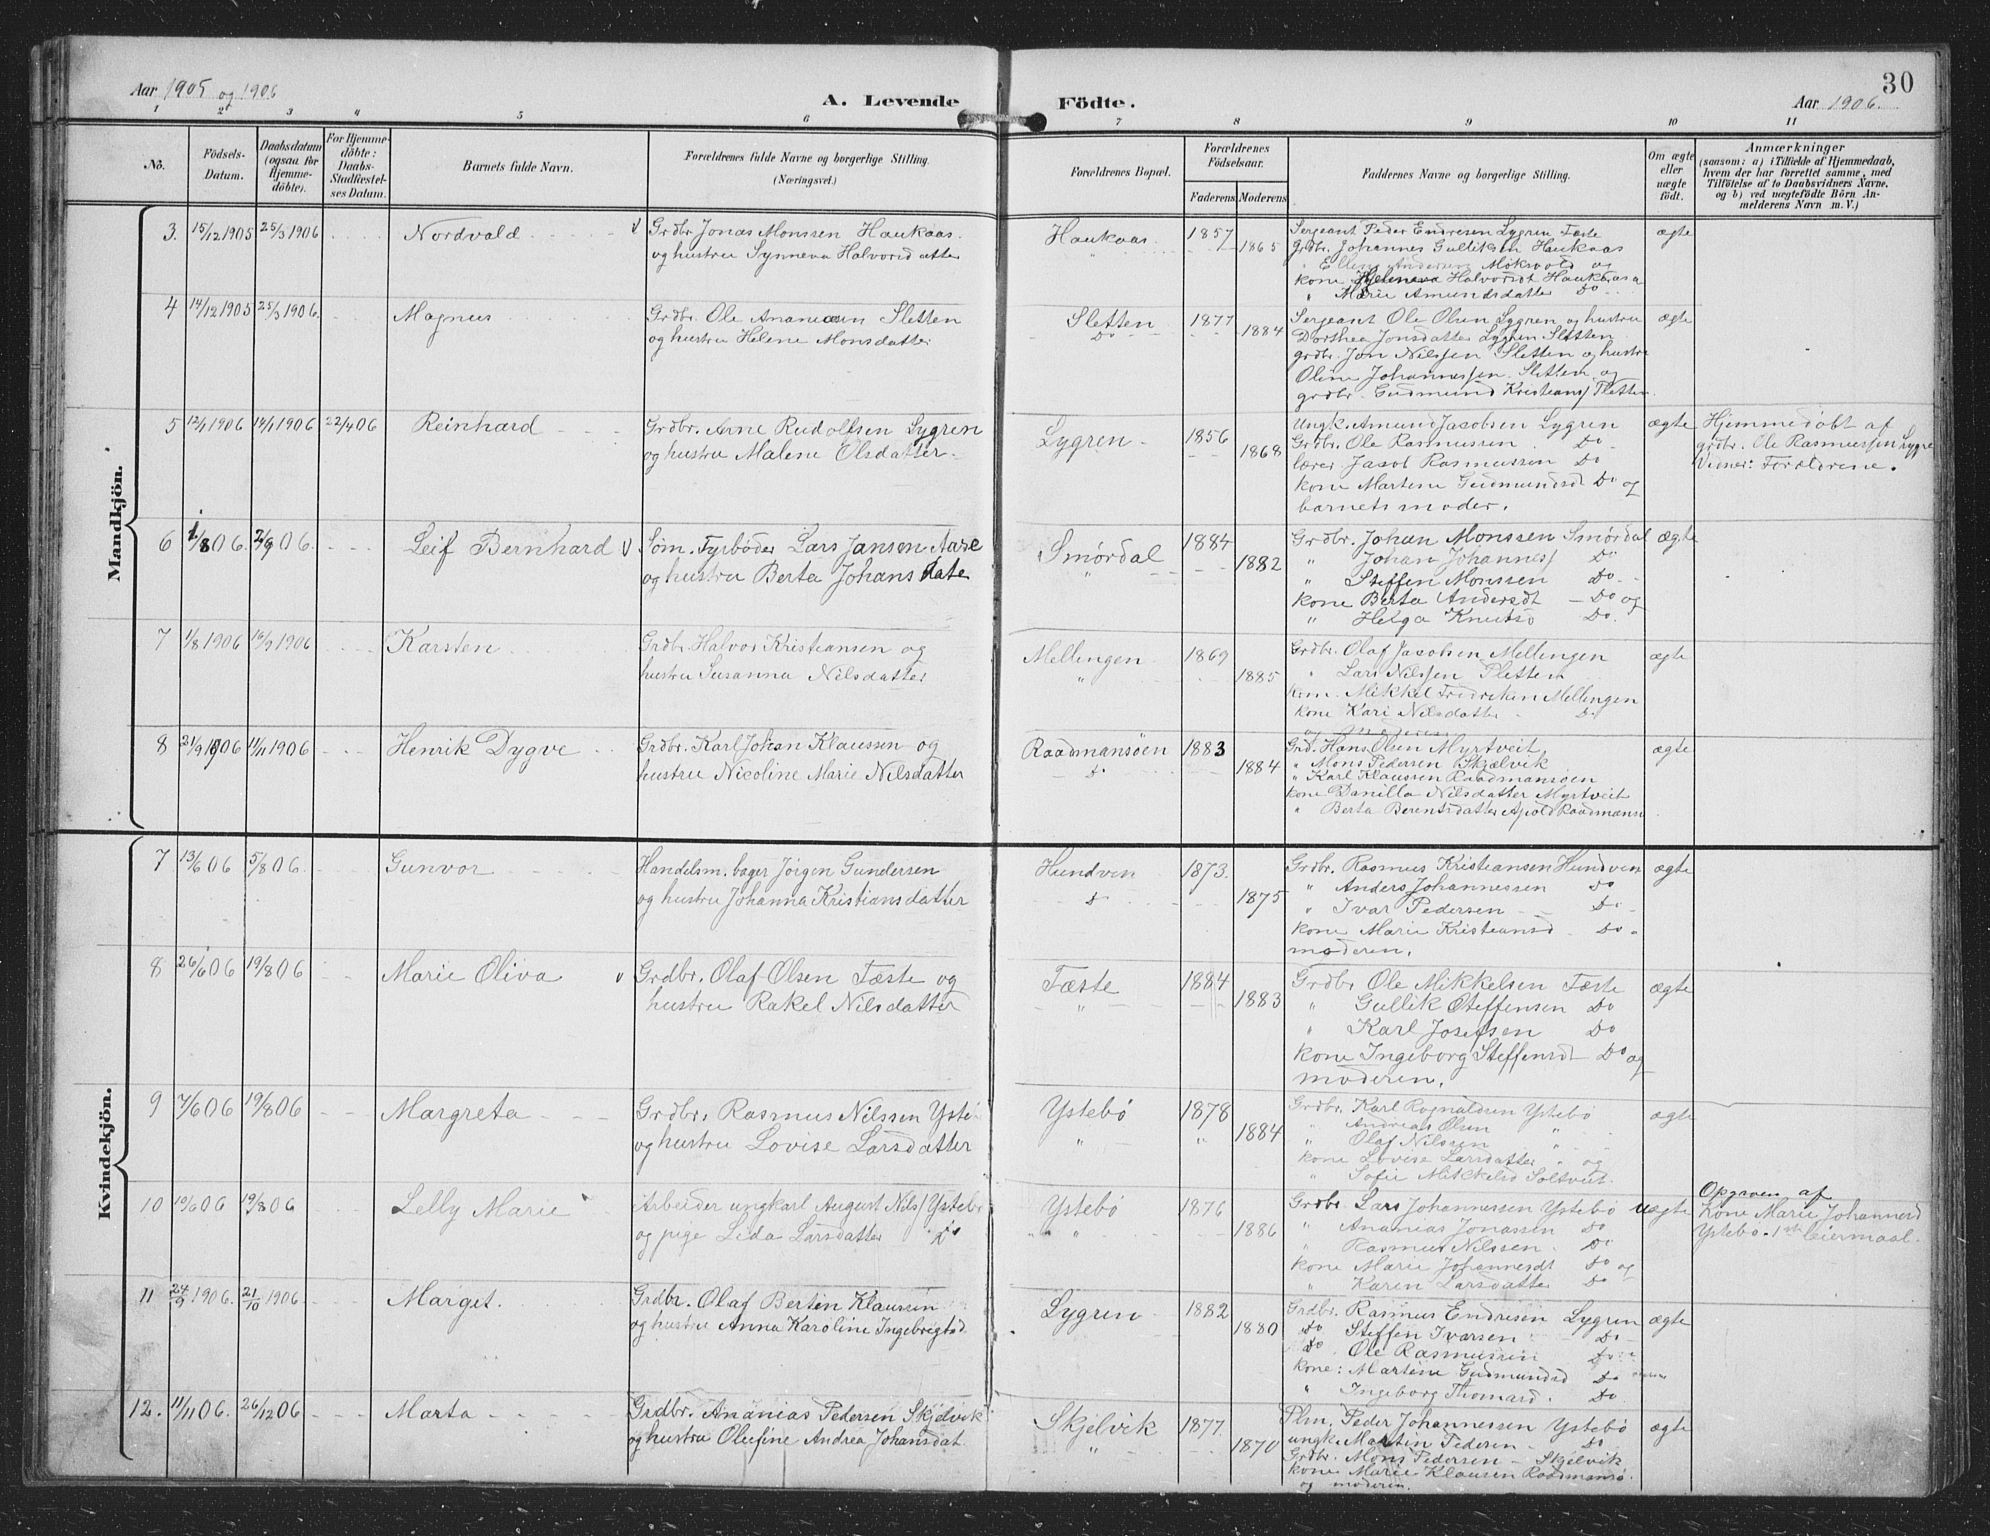 Aar 1905 og 1906
A. Levende Födte.
Aar 1906.
30
1 2 3 " 5 6 7 8 9 10 11
No.
Födsels-Datum.
Daabsdatum (ogsaa for Hjemmedöbte).
For Hjemmedöbte: Daabs-Stadfæstelses Datum.
Barnets fulde Navn.
Forældrenes fulde Navne og borgerlige Stilling. (Næringsvei.)
Forældrenes Bopæl.
Forældrenes Födselsaar.
Faderens Moderens
Faddernes Navne og borgerlige Stilling.
Om ægte eller uægte födt.
Anmærkninger
(saasom: a) i Tilfælde af Hjemmedaab, hvem der har forrettet samme, med Tilföielse af to Daabsvidners Navne, og b) ved uægtefödte Börn Anmelderens Navn m. V.)
Mandkjön.
3. 15/12 1905 25/3 1906 Nordvald
Grdbr Jonas Monssen Haukaas
og hustru Synneva Halvorsdatter
Haukaas 1857 1865
Sergeant Peder Endresen Lygren Fæste
Grdbr. Johannes Gulliksen Haukaas
" Elling Andersen Moksvold og
kone Halvorsdt Haukaas
" Marie Amundsdatter Do
ægte
4 14/12 1905 25/3 1906. Magnus
Grdbr Ole Ananiassen Sletten
og hustru Helene Monsdatter
Sletten Do 1877 1884
Sergeant Ole Olsen Lygren og hustru
Dorthea Jonsdatter Lygren Sletten
grdbr. Jon Nilssen Sletten og hustru
Oline Johannessen Sletten og
grdbr. Gudmund Kristians Sletten
ægte
5 12/1 1906 14/1 1906 22/4 06 Reinhard
Grdbr. Arne Rudolfsen Lygren
og hustru Malene Olsdatter
Lygren 1856 1868
Ungk. Amund Jacobsen Lygren
Grdbr. Ole Rasmussen Do
lærer Jacob Rasmussen Do
kone Martine Gudmundsd Do og
barnets moder.
ægte
Hjemmedøbt af
grdbr. Ole Rasmussen Lygre
Vidner: Forældrene.
6 1/8 06. 2/9 06. Leif Bernhard
Søm. Fyrbøder Lars Jansen Aase
og hustru Berta Johansdate
Smørdal 1884 1882
Grdbr. Johan Monssen Smørdal
" Johan Johanness Do
" Steffen Monssen Do
kone Berta Andersdt Do og
" Helga Knuts Do
ægte
7 1/8 1906 16/9 1906 Karsten
Grdbr. Halvor Kristiansen og
hustru Susanna Nilsdatter
Mellingen 1869 1885
Grdbr. Olaf Jacobsen Mellingen
" Lars Nilssen Sletten
Mikkel Fredriksen Mellingen
kone Kari Nilsdatter Do
ægte
8 21/9 1906 11/11 1906 Henrik Dygve
Grdbr. Karl Johan Klaussen og
hustru Nicoline Marie Nilsdatter
Raadmansøen Do 1883 1884
Grd. Hans Olsen Myrtveit
" Mons Pedersen Skjælvik
" Karl Klaussen Raadmansøen
kone Danilla Nilsdatter Myrtveit
" Berta Berentsdatter Raadmans
ægte
Kvindekjön.
7 13/6 06 5/8 06. Gunvor
Handelsm. bager Jörgen Gundersen
og hustru Johanna Kristiansdatter
Hundven Do 1873. 1875
Grdbr. Rasmus Kristiansen Hundven
" Anders Johannessen Do
" Ivar Pedersen Do
kone Marie Kristiansd Do
moderen.
ægte
8 26/6 06 19/8 06 Marie Oliva
Grdbr. Olaf Olsen Fæste og
hustru Rakel Nilsdatter
Fæste 1884 1883
Grdbr Ole Mikkelsen Fæste
" Gullik Steffensen Do
" Karl Josefsen Do
kone Ingeborg Steffensdt Do og
moderen.
ægte
9 7/6 06 19/8 06 Margreta
Grdbr. Rasmus Nilssen Ystebö
og hustru Lovise Larsdatter
Ystebö 1878 1884
Grdbr. Karl Rognaldsen Ystebö
" Andreas Olsen "
" Olaf Nilssen "
kone Lovise Larsdatter " og
" Sofie Mikkelsd Soltveit
ægte
10 19/6 06 19/8 06 Lelly Marie
Arbeider ungkarl August Nils/ Ystebö
og pige Lida Larsdatter Do
Ystebö 1876 1886
Grdbr. Lars Johannessen Ystebö
" Ananias Jonassen Do
" Rasmus Nilssen Do
kone Marie Johannesdt Do og
" Karen Larsdatter Do
uægte
Opgiven af
Kone Marie Johannesd
Ystebö. 1ste leiermaal.
11 24/9 1906. 21/10 1906 Marget.
Grdbr. Olaf Bertin Klaussen
og hustru Anna Karoline Ingebrigtsd
Lygren 1882 1880
Grdbr. Rasmus Endresen Lygren
Do Steffen Ivarsen Do
Do Ole Rasmussen Do
kone: Martine Gudmundsd Do
" Ingeborg Thomasd. Do
ægte
12. 11/11 06. 26/12 06 Marta
Grdbr. Ananias Pedersen Skjelvik
og hustru Olufine Andrea Johansdat.
Skjelvik 1877. 1870
Plm. Peder Johannessen Ystebö
ungk. Martin Pedersen Do
Grdbr. Mons Pedersen Skjelvik
kone Marie Klausen Raadmansö.
og moderen.
ægte